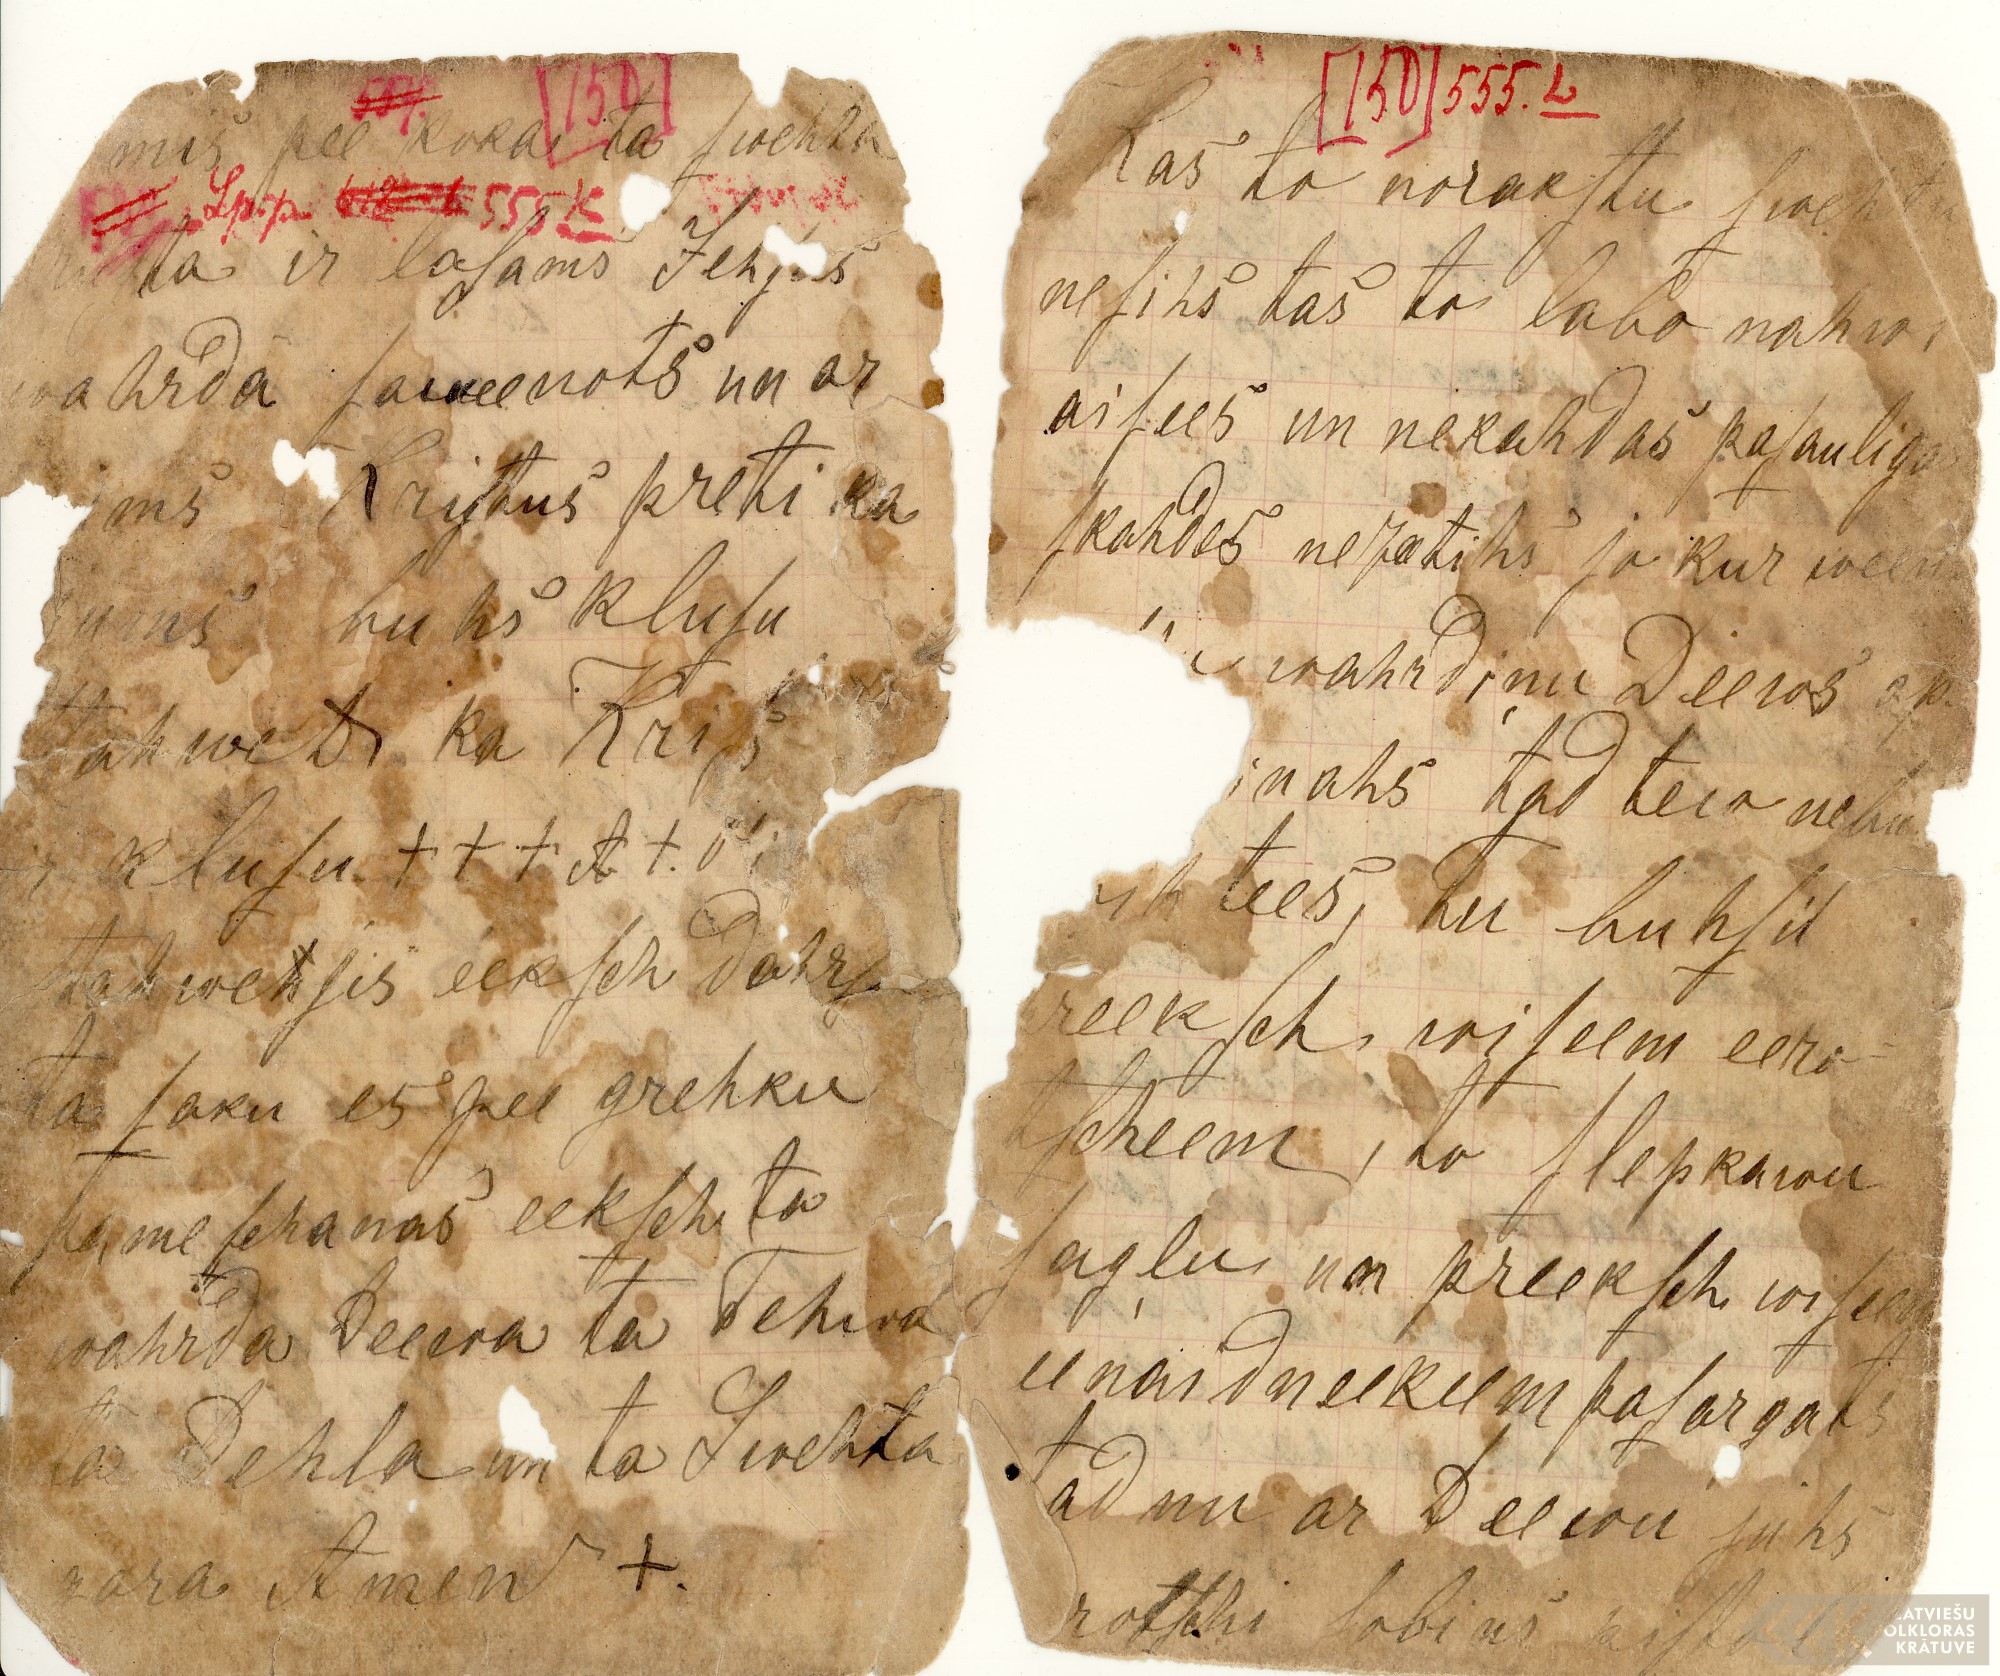 [150]
mis pee koka ta swehta
555 K
ta ir lasams Jehsus
wahrdā saweenots un ar
Kristus preti ka
buhs klusu
ka Kris
klusu. + + + A +.
stahwehjis eeksch dahrs
ta saku es pee grehku
pameschanas eeksch ta
wahrda Deewa ta Tehwa
ta Dehla un ta Swehta
gara Amen +.
[150] 555. L
Kas to norakstu swehtu
nesihs tas to labo nahwi
aisees un nekahdas pasauliga
skahdes nezatihs jo kur ween
wahrdinu Deews ap-
inahs tad tewa nebu
tees, tu buhsit
preeksch wiseem eero-
tscheem, to slepkawu
saglu un preeksch wiseem
eenaidneekeem pasargats
tad nu ar Deewu juhs
rotschi sobins
LATVIEŠU
FOLKLORAS
KRĀTUVE